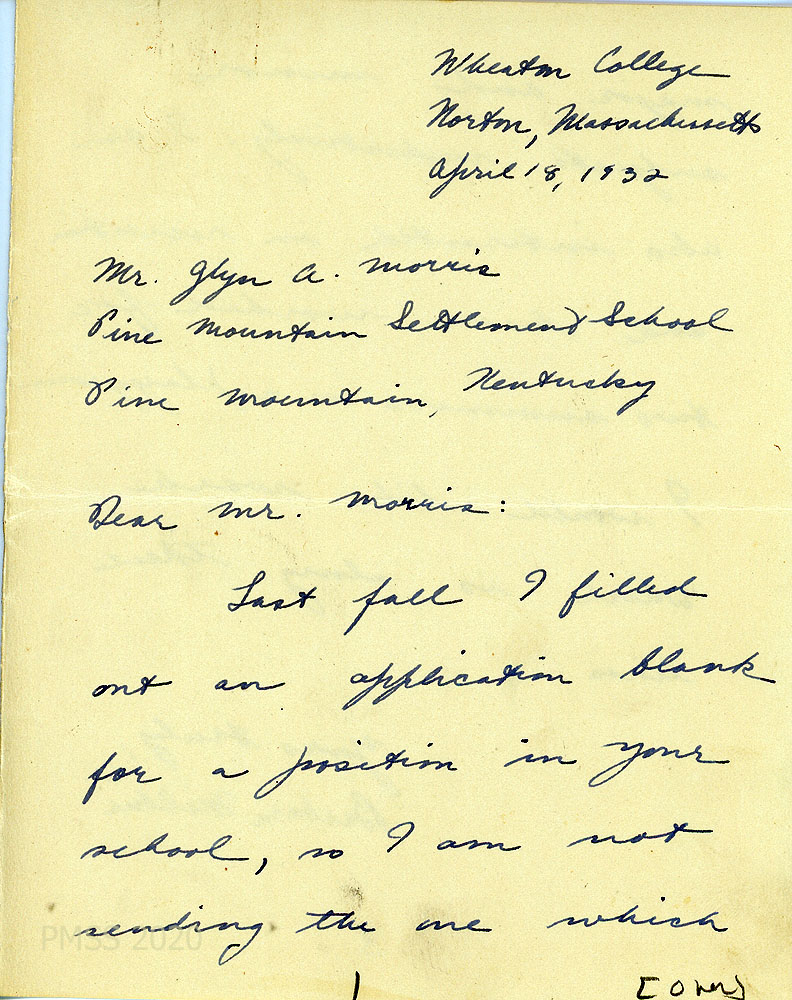 Wheaton College
Norton, Massachusetts
April 18, 1932
Mr. Glyn A. Morris
Pine Mountain Settlement School
Pine Mountain, Kentucky
Dear Mr. Morris:
Last fall I filled
out an application blank
for a position in your
school, so I am not
sending the one which
PMSS 2020
1
[over]